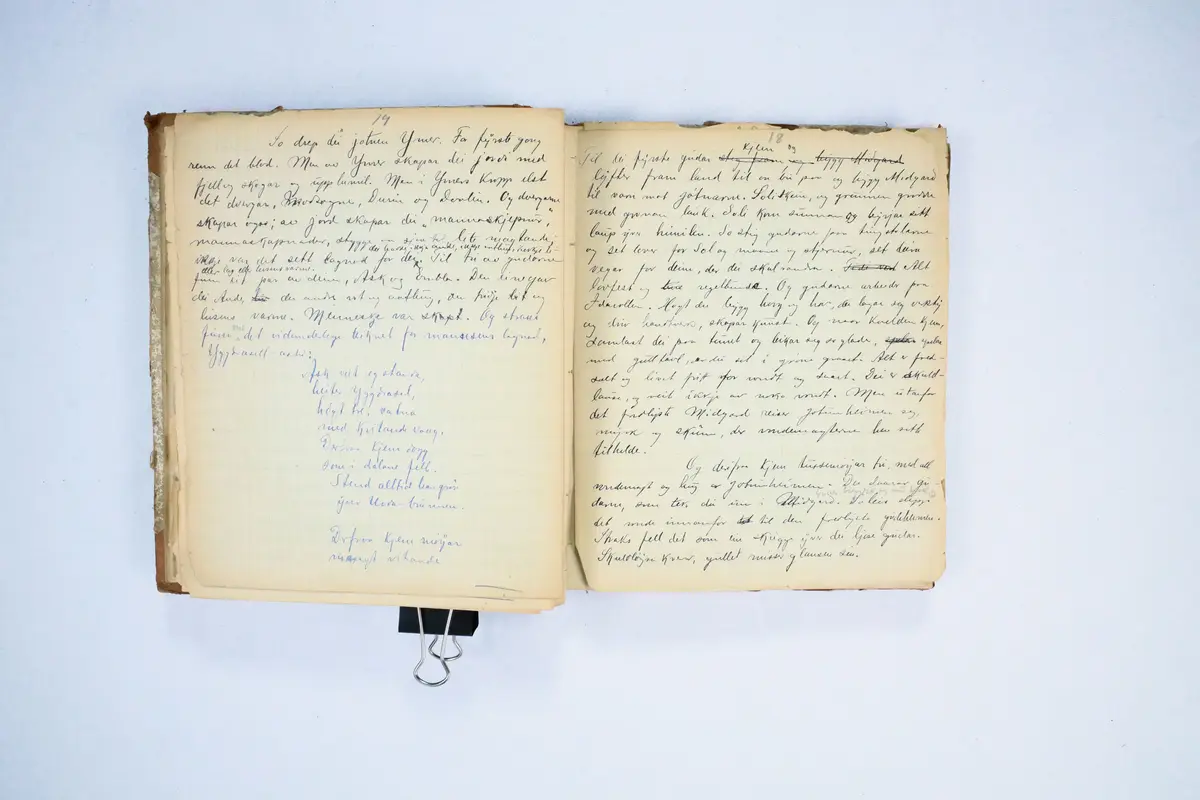 19
So drap dei jotnen Ymer. Fa fyrste gong
renn det blod. Men av Ymer skapar dei jordi med
fjell og skogar og upphimil. Men i Ymers kropp elst
det dvergar, Modsogne, Durin og Dvalin. Og dvergarne
skapar ogso; av jord skapar dei "mannaskjepnur,"
mannaskapnader, stygge
var det sett lagnad for dei. Til tri av gudarne
finn eit par av deim, Ask og Embla. Den eine gav
dei Ande, den andre vit og
livsens varme. Menneskje var skapt. Og straks
det vidunderlege teiknet for mannsens lagnad,
Yggdrasell-
Ask veit eg standa,
heiter Yggdrasel,
høgt tre,
med kvitande vaag.
Derfraa kjem dogg
som i dalane fell.
Stend alltid
yver Urda-brunnen.
Derfraa kjem møyar
margt vitande
18
kjem og
Til dei fyrste gudar steig fram og bygg Midgard
lyfter fram land til aa bu paa og bygg Midgard
til varn mot Jotnarne. Soli skein, og grunnen grodde
med grønan lauk. Soli kom sunnan og byrjar sitt
laup yver himilen. So stig gudarne paa tingstolarne
og set lover for Sol og maane og stjernur, set deim
vegar for deim, der dei skal vandra. Alt
lovfest og regelbunde. Og gudarne arbeider paa
Idavollen. Høgt dei bygg horg og hov, dei lagar seg verkty
og driv handverk, skapar kunst. Og naar kvelden kjem,
samlast dei paa tunet og leikar seg so glade,
med gulltavl, der dei sit i grøne graset. Alt er fred-
selt og livet fritt for vondt og saart. Dei er skuld-
lause, og veit ikkje av noko vondt. Men utanfor
det fredlyste Midgard reiser Jotunheimen seg,
myrk og skum, der vondemagterne hev sitt
tilhelde.
Og derfraa kjem tussemøyar tri, med all
vondemagt og hug av Jotunheimen. Dei daarar gu-
darne, som tek dei inn i Midgard. Soleis slepp
det vonde innanfor til den fredlyste gudeheimen.
Straks fell det som ein skugge yver dei ljose gudar.
Skuldløysa kverv, gullet misser glansen sin.